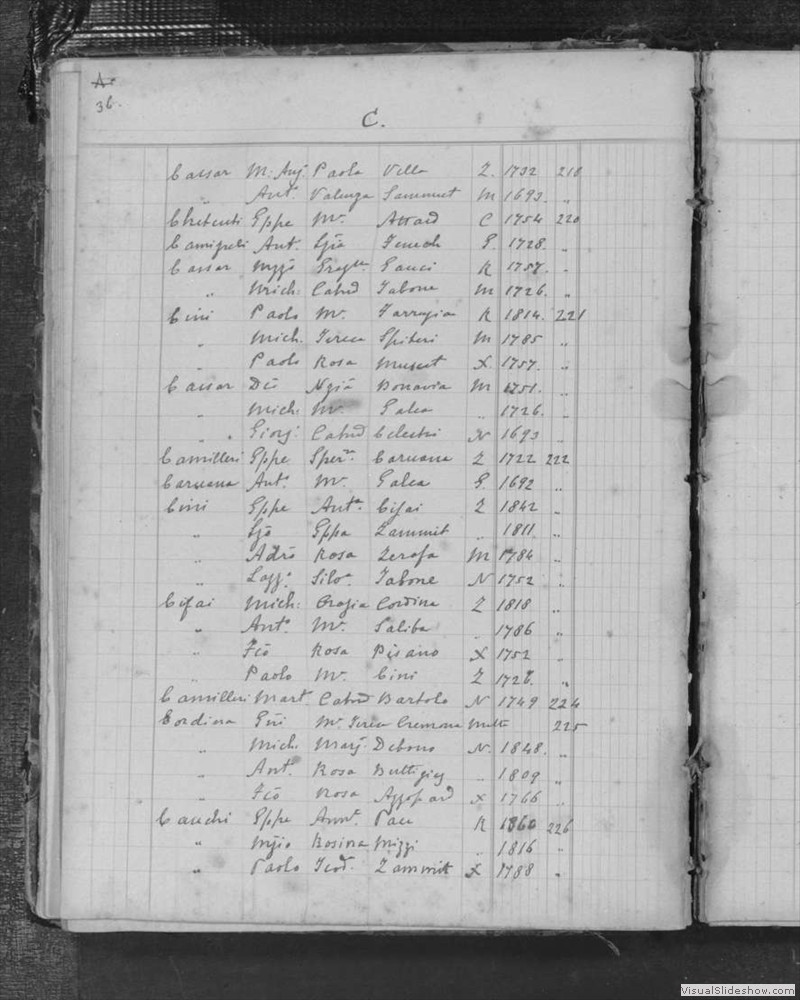 A
36.
C.
Cassar M. Anj. Paola Vella Z. 1732 218
„ Ant.º Valenza Sammut M 1693. „
Chetcuti Gppe Mª. Attard C 1754 220
Camilleri Ant. G. 1728. „
Cassar Grazª. Gauci R 1757. „
„ Mich. Catnd Tabone M 1726. „
Cini Paolo Mª. Farrugia R 1814. 221
„ Mich. Teresa Spiteri M 1785 „
„ Paolo Rosa Muscat X. 1757. „
Cassar Bonavia M 1751. „
„ Mich. Mª. Galea „ 1726. „
„ Giorg: Catnd Celestri N 1693 „
Camilleri Gppe Sper.za Caruana Z 1722 222
Caruana Ant.º Mª. Galea G. 1692 „
Cini Gppe Ant.ª Cifai Z 1842 „
„ Gppa Zammit „ 1811. „
„ Adrº Rosa Zerafa M 1784 „
„ Lazz.º Silv.ª Tabone N 1752 „
Cifai Mich: Orazia Cordina Z 1818 „
„ Ant.º Mª. Saliba „ 1786 „
„ Fcö Rosa Pisano X 1752 „
„ Paolo Mª. Cini Z 1726. „
Camilleri Mart. Catnd Bartolo N 1749 224
Cordina Gñi Mª. Teresa Cremona Malta 225
„ Mich. Marg: Debono N. 1848. „
„ Ant.º Rosa Buttigieg „ 1809 „
„ Fcö Rosa Azzopard X 1766 „
Cauchi Gppe Annt. Pace R 1860 226
„ Rosina Mizzi „ 1816 „
„ Paolo Teod.ª Zammit X 1788 „
VisualSlideshow.com